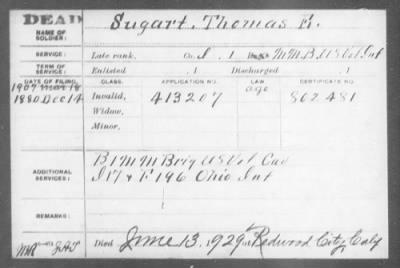 DEAD
NAME OF SOLDIER: Sugart, Thomas E.
SERVICE: Late rank, Co. I, 1 Reg't M M B U S Vol Inf
TERM OF SERVICE: Enlisted , 1 Discharged , 1
DATE OF FILING. CLASS. APPLICATION NO. LAW CERTIFICATE NO.
1907 Mar 18 age
1880 Dec 14 Invalid, 413207 862.481
Widow,
Minor,
ADDITIONAL SERVICES: B 1 M M Brig U S Vol Cav
I 17 & F 196 Ohio Inf
REMARKS:
Died June 13, 1929 at Redwood City, Caly